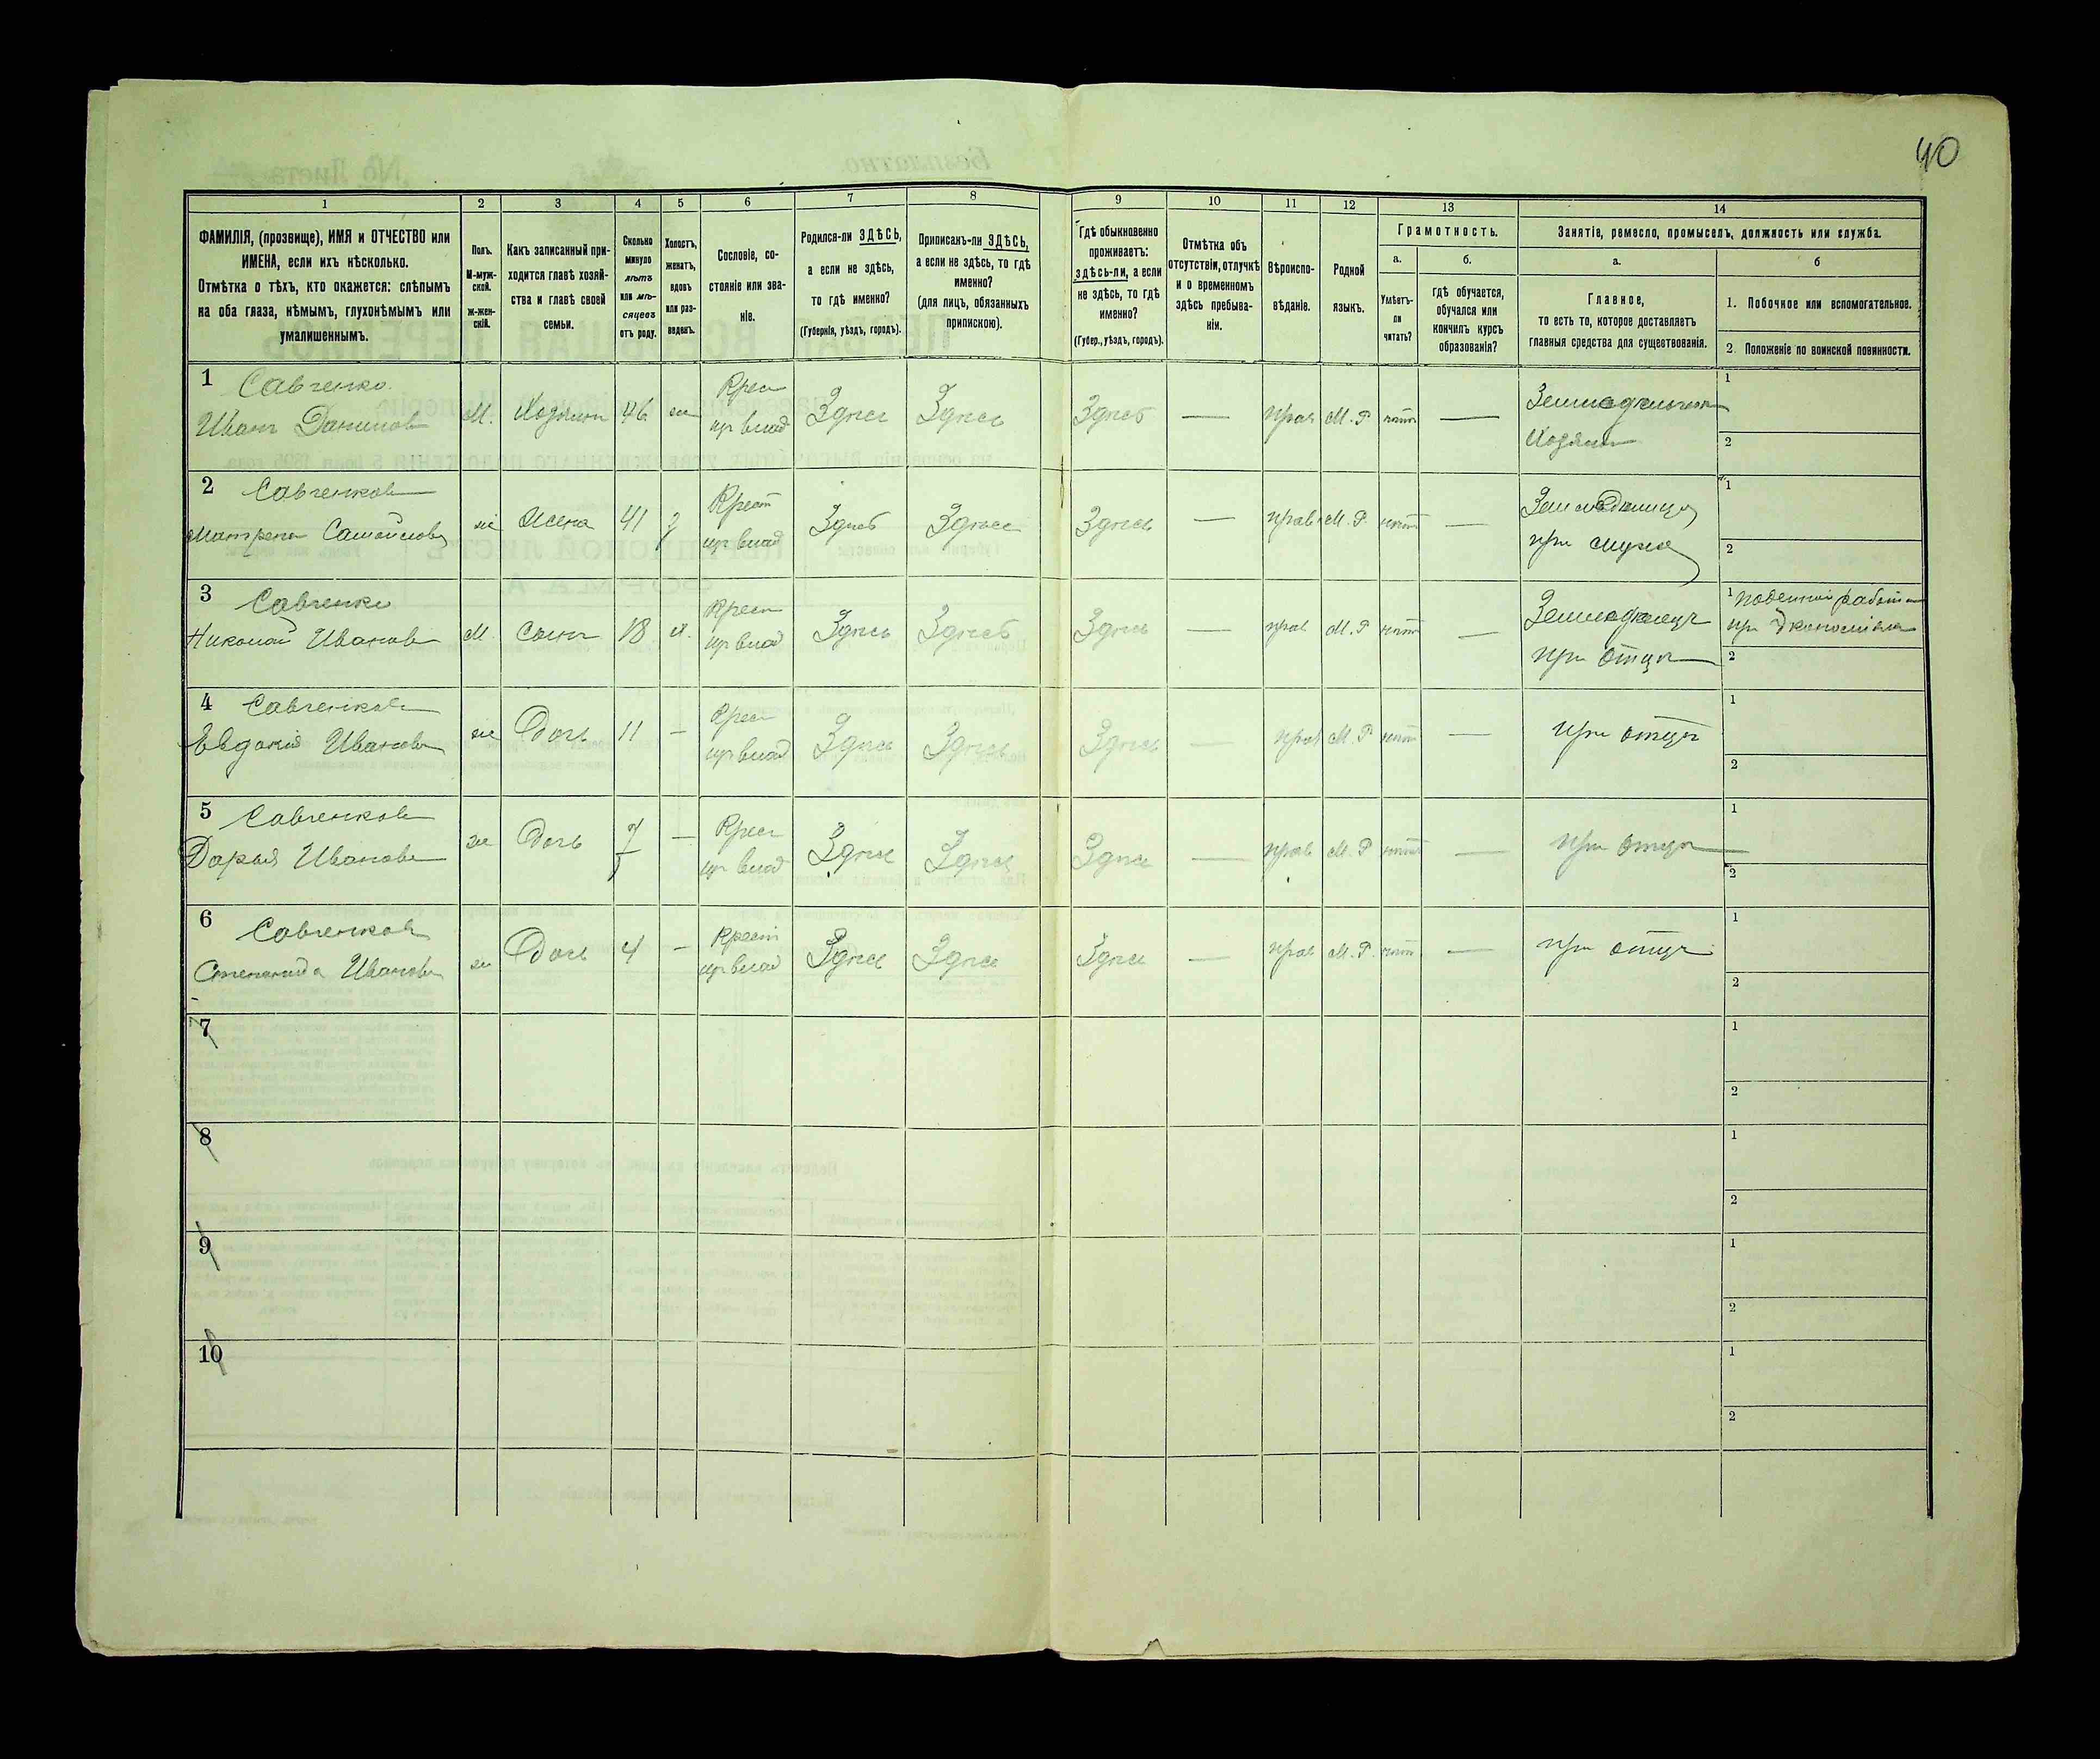 40
1 2 3 4 5 6 7 8 9 10 11 12 13 14
ФАМИЛІЯ, (прозвище), ИМЯ и ОТЧЕСТВО или
ИМЕНА, если ихъ нѣсколько.
Отмѣтка о тѣхъ, кто окажется: слѣпымъ
на оба глаза, нѣмымъ, глухонѣмымъ или
умалишеннымъ.
Полъ.
М-муж-
ской.
Ж-жен-
скій.
Какъ записанный при-
ходится главѣ хозяй-
ства и главѣ своей
семьи.
Сколько
минуло
лѣтъ
или мѣ-
сяцевъ
отъ роду.
Холостъ,
женатъ,
вдовъ
или раз-
веденъ.
Сословіе, со-
стояніе или зва-
ніе.
Родился-ли ЗДѢСЬ,
а если не здѣсь,
то гдѣ именно?
(Губернія, уѣздъ, городъ).
Приписанъ-ли ЗДѢСЬ,
а если не здѣсь, то гдѣ
именно?
(для лицъ, обязанныхъ
припискою).
Гдѣ обыкновенно
проживаетъ:
здѣсь-ли, а если
не здѣсь, то гдѣ
именно?
(Губер., уѣздъ, городъ).
Отмѣтка объ
отсутствіи, отлучкѣ
и о временномъ
здѣсь пребыва-
ніи.
Вѣроиспо-
вѣданіе.
Родной
языкъ.
Грамотность.
а.
Умѣетъ-
ли
читать?
б.
гдѣ обучается,
обучался или
кончилъ курсъ
образованія?
Занятіе, ремесло, промыселъ, должность или служба.
а.
Главное,
то есть то, которое доставляетъ
главныя средства для существованія.
б
1. Побочное или вспомогательное.
2. Положеніе по воинской повинности.
1 Савченко
Иванъ Даниловъ М. Хозяинъ 46 ж Крест Здѣсь Здѣсь Здѣсь — прав М. Р нѣтъ — Земледѣлецъ 1
Хозяинъ 2
2 Савченкова
Матрена Самойлова ж Жена 41 Крест Здѣсь Здѣсь Здѣсь — прав М. Р. нѣтъ — 1
при мужѣ 2
3 Савченко
Николай Ивановъ М Сынъ 18 х. Крест Здѣсь Здѣсь Здѣсь — прав М. Р нѣтъ — Земледѣлецъ 1
при отцѣ 2
4 Савченкова
Евдокія Иванова ж Дочь 11 — Крест Здѣсь Здѣсь Здѣсь — прав М. Р нѣтъ — при отцѣ 1
2
5 Савченкова
Дарья Иванова ж Дочь 7 — Крест Здѣсь Здѣсь Здѣсь — прав М. Р нѣтъ — при отцѣ 1
2
6 Савченкова
Степанида Иванова ж Дочь 4 — Крест Здѣсь Здѣсь Здѣсь — прав М. Р. нѣтъ — при отцѣ 1
2
7 1
2
8 1
2
9 1
2
10 1
2